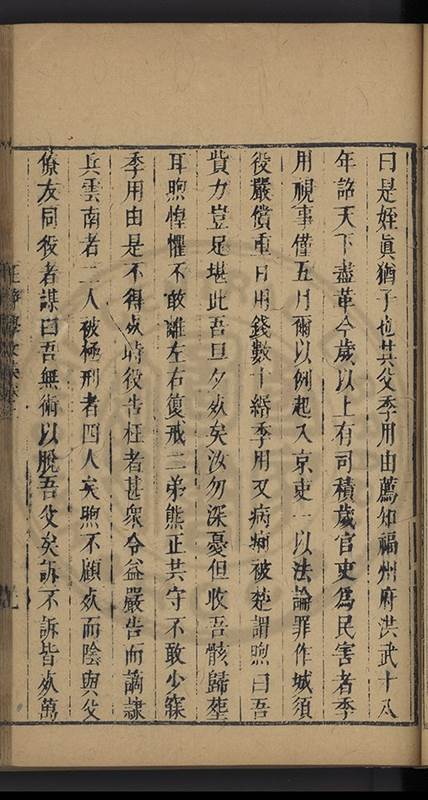 曰是姪真猶子也其父季用由薦知福州府洪武十八
年詔天下盡革今歲以上有司積歲官吏為民害者季
用視事僅五月爾以例起入京吏一以法論罪作城須
役嚴償重日用錢數十緡季用又病痢被楚謂煦曰吾
貲力豈足堪此吾旦夕死矣汝勿深憂但收吾骸歸塟
耳煦惶懼不敢離左右復戒二弟熊正共守不敢少寐
季用由是不得死時役告枉者甚衆令益嚴告而謫隷
兵雲南者二人被極刑者四人矣煦不顧死而陰與父
僚友同役者謀曰吾無術以脫吾父矣訴不訴皆死萬